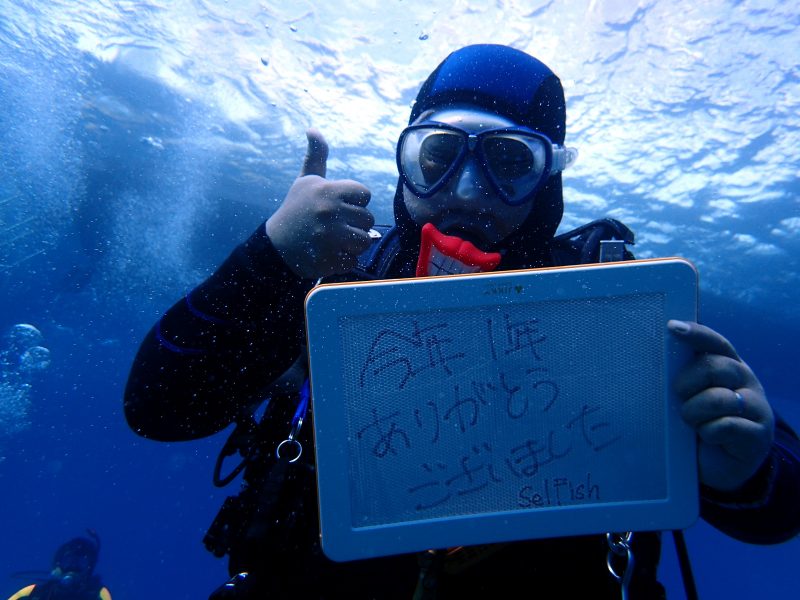 今年1年
ありがとう
ございました
Selfish